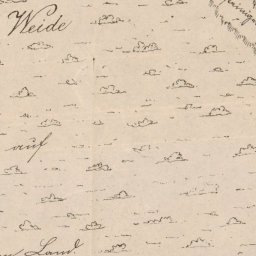 Weide
auf
Land